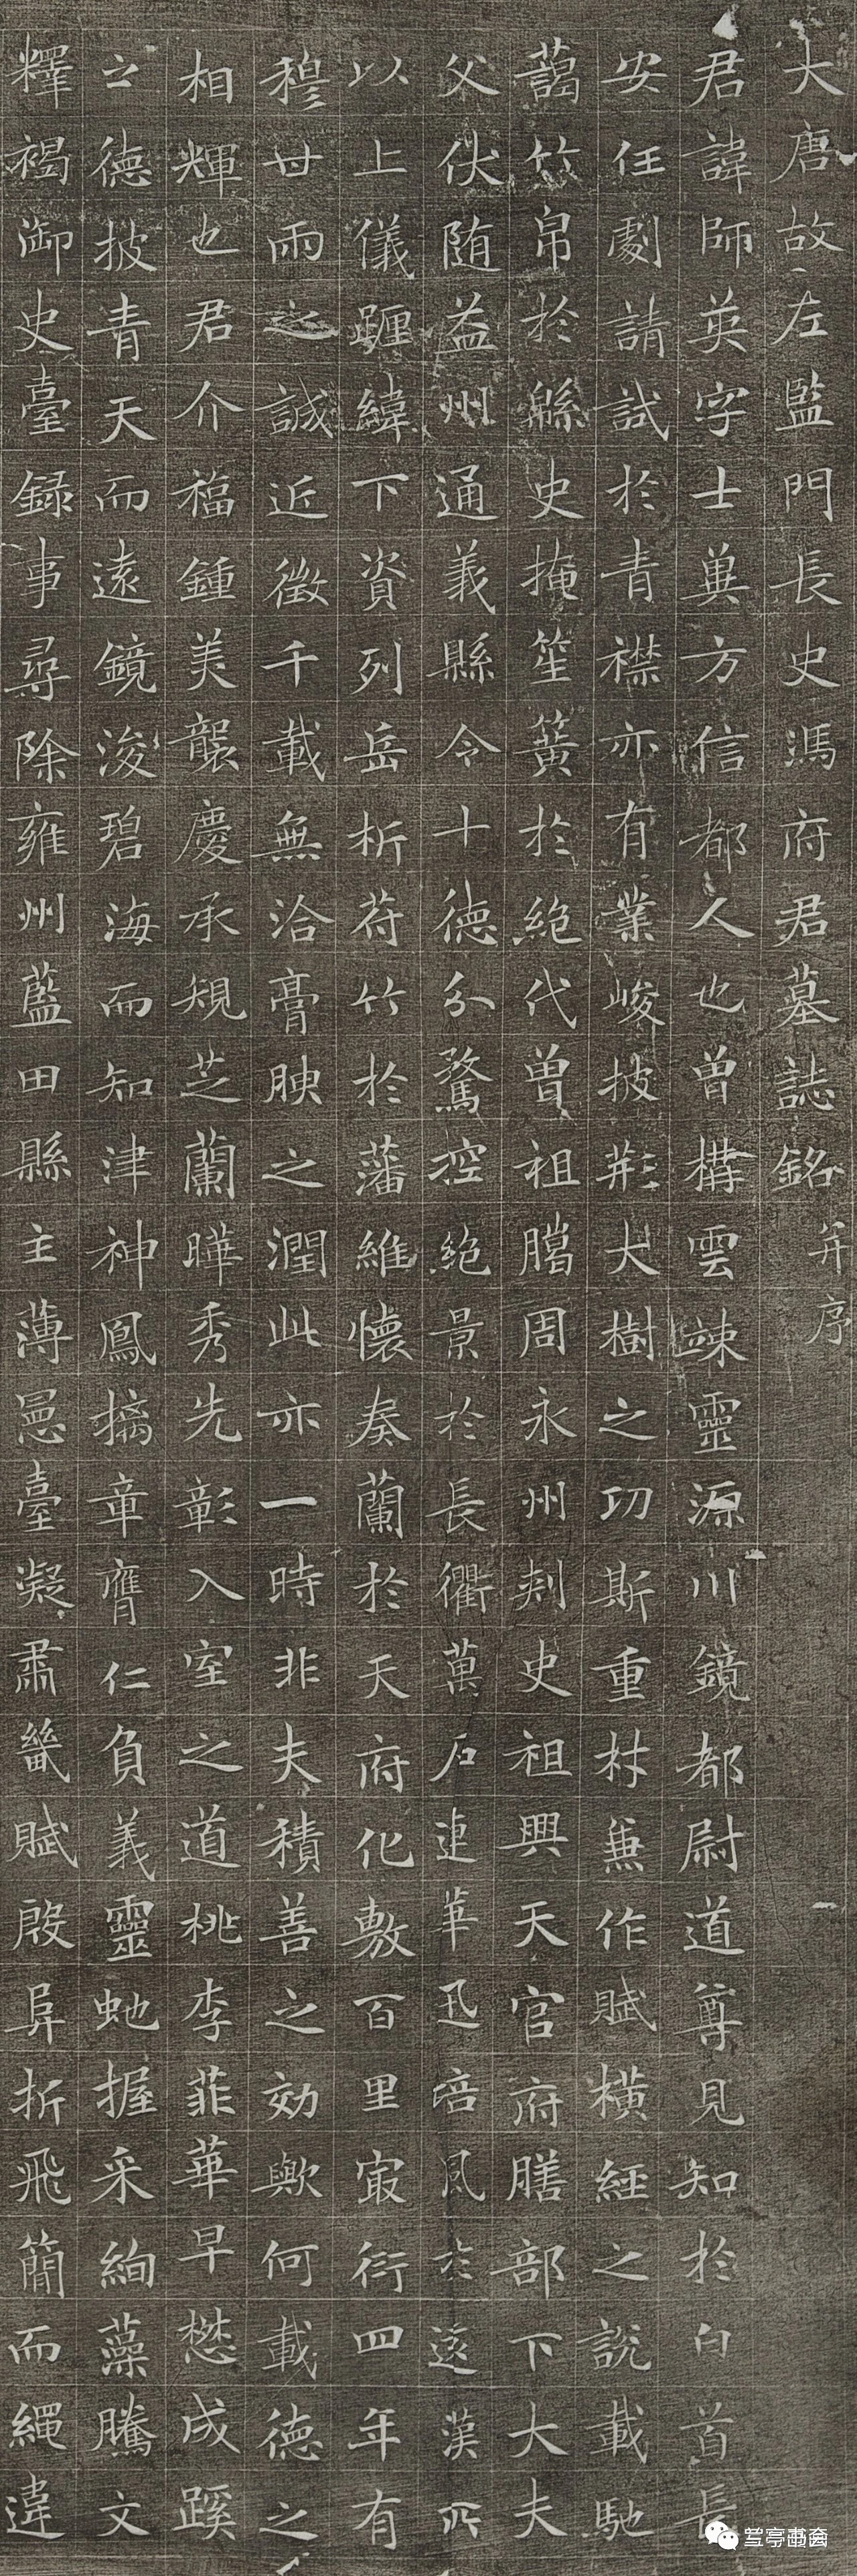 大唐故左監門長史馮府君墓誌銘并序
君諱師英字士奭方信都人也曾構雲竦靈源川鏡都尉道尊見知於白首長
安任劇請試於青襟亦有業峻披荊大樹之功斯重材兼作賦橫經之說載馳
藹竹帛於緜史掩笙簧於絕代曾祖腾周永州刺史祖興天官府膳部下大夫
父伏随益州通義縣令十德分鶩控絕景於長衢萬石連華迅培風於遠漢所
以上儀躔緯下資列岳析苻竹於藩維懷奏蘭於天府化敷百里㝡衍四年有
穆世雨之誠近徵千載無洽膏腴之潤此亦一時非夫積善之効歟何載德之
相輝也君介福鍾美襲慶承規芝蘭曄秀先彰入室之道桃李菲華早懋成蹊
之德披青天而遠鏡浚碧海而知津神鳳摛章膺仁負義靈虵握采絢藻騰文
釋褐御史臺録事尋除雍州藍田縣主薄憲臺凝肅畿賦殷阜折飛簡而繩違
兰亭書會